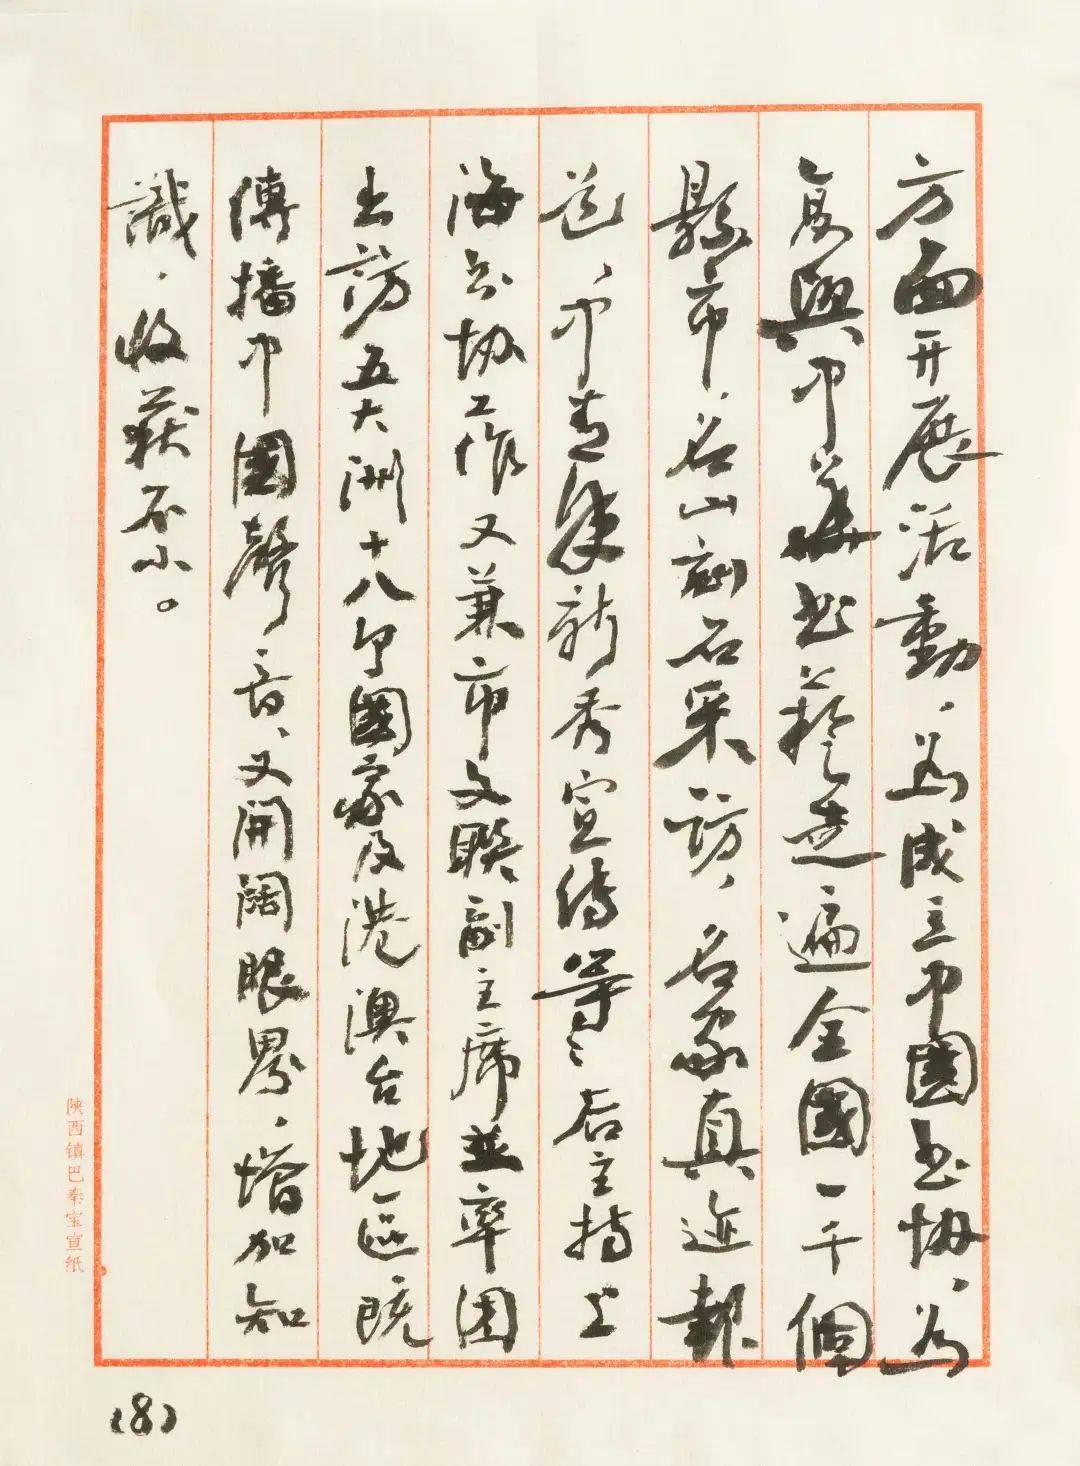 方面开展活動，為成立中國书協，為
复興中华书藝走遍全國一千個
縣市，名山刻石采访，名家真迹報
道，中青年新秀宣传等々后主持上
海书协工作又兼市文聯副主席並率团
出訪五大洲十八个國家及港澳台地區既
傳播中國聲音、又開闊眼界，增加知
識，收获不小。
陕西镇巴秦宝宣纸
(8)